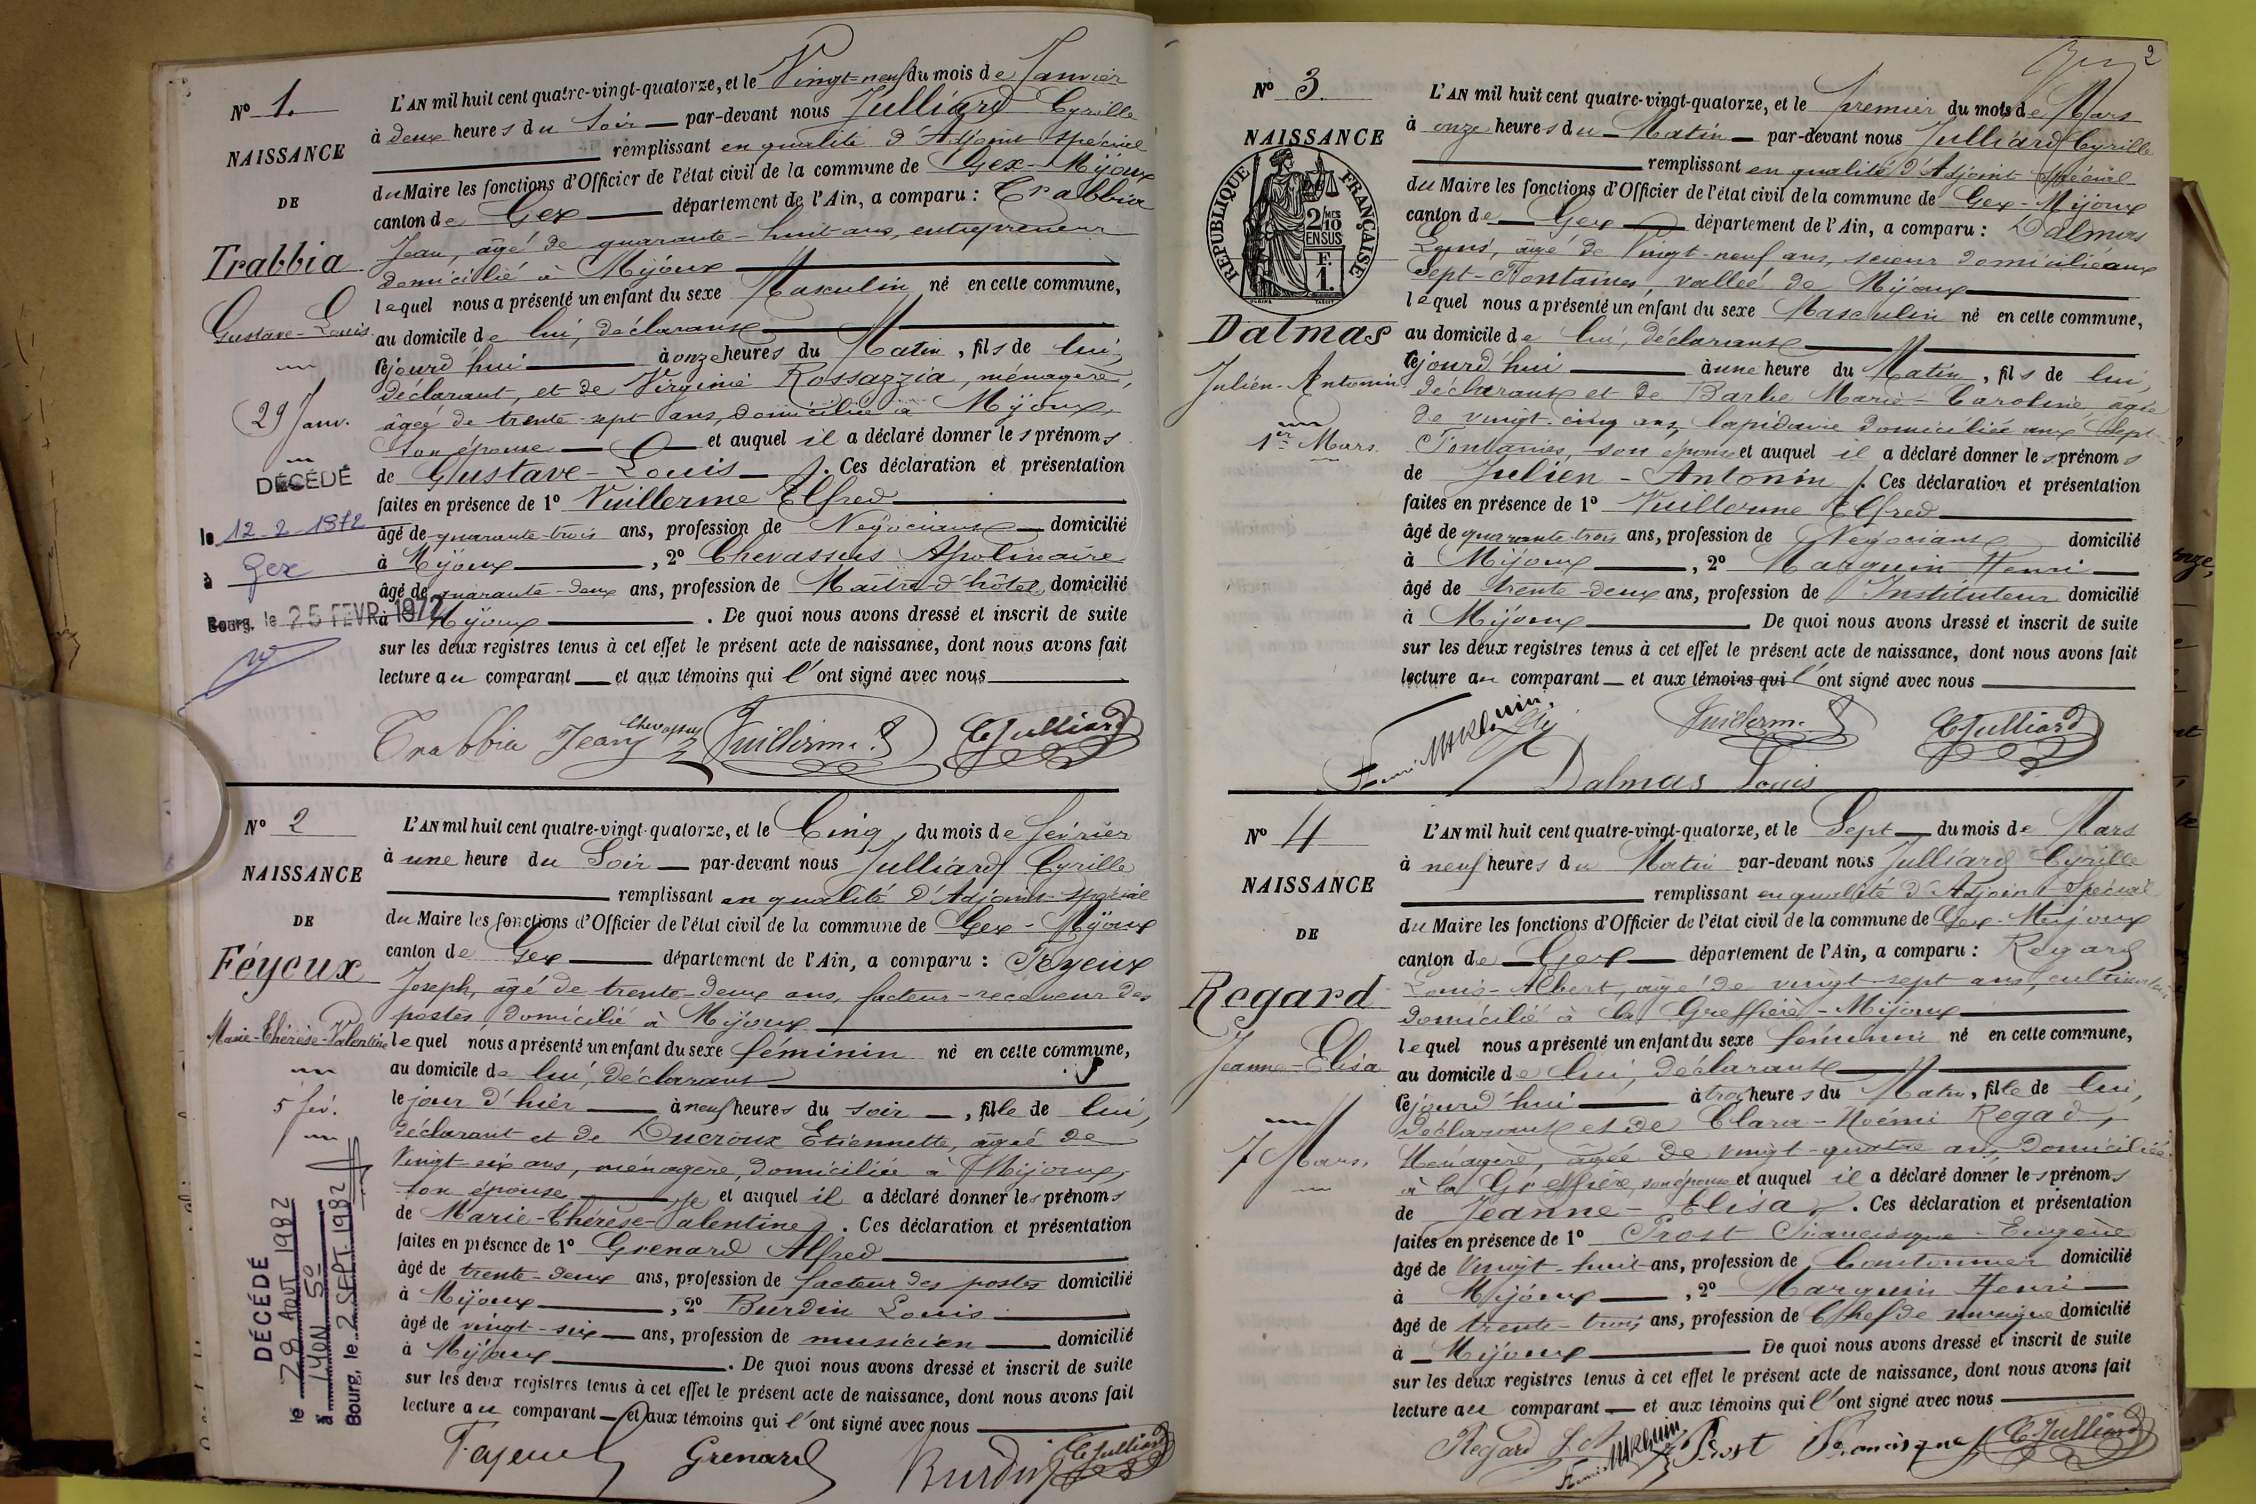 N° 1.
NAISSANCE
DE
Trabbia
Gustave-Louis.
29 Janv.
DÉCÉDÉ
le 12-2-1972
à Gex
Bourg, le 25 FEVR 1972
L'AN mil huit cent quatre-vingt-quatorze, et le Vingt-neuf du mois de Janvier
à deux heures du soir par-devant nous Julliard Cyrille
remplissant en qualité d'Adjoint spécial
du Maire les fonctions d'Officier de l'état civil de la commune de Gex-Mijoux
canton de Gex département de l'Ain, a comparu : Trabbia
Jean, âgé de quarante-huit ans, entrepreneur
domicilié à Mijoux
lequel nous a présenté un enfant du sexe Masculin né en cette commune,
au domicile de lui, déclarant
cejourd'hui à onze heures du Matin, fils de lui,
déclarant, et de Virginie Rossazzia, ménagère,
âgée de trente-sept ans, domiciliée à Mijoux,
son épouse et auquel il a déclaré donner les prénoms
de Gustave-Louis. Ces déclaration et présentation
faites en présence de 1° Vuillerme Elfred
âgé de quarante-trois ans, profession de Négociant domicilié
à Mijoux, 2° Chevassus Apolinaire
âgé de quarante-deux ans, profession de Maître d'hôtel domicilié
à Mijoux. De quoi nous avons dressé et inscrit de suite
sur les deux registres tenus à cet effet le présent acte de naissance, dont nous avons fait
lecture au comparant et aux témoins qui l'ont signé avec nous
Trabbia Jean Chevassus Vuillerme E CJulliard
N° 2
NAISSANCE
DE
Féyeux
Marie-Thérèse-Valentine
5 fév.
DÉCÉDÉ
le 28 AOUT 1982
à LYON 5°
Bourg, le 2 SEPT. 1982
L'AN mil huit cent quatre-vingt-quatorze, et le Cinq du mois de février
à une heure du Soir par-devant nous Julliard Cyrille
remplissant en qualité d'Adjoint-spécial
du Maire les fonctions d'Officier de l'état civil de la commune de Gex-Mijoux
canton de Gex département de l'Ain, a comparu : Feyeux
Joseph, âgé de trente-deux ans, facteur-receveur des
postes, domicilié à Mijoux
lequel nous a présenté un enfant du sexe féminin né en cette commune,
au domicile de lui, déclarant
le jour d'hier à neuf heures du soir, fille de lui,
déclarant et de Ducroux Etiennette, âgée de
Vingt-six ans, ménagère, domiciliée à Mijoux,
son épouse et auquel il a déclaré donner les prénoms
de Marie-Thérèse-Valentine. Ces déclaration et présentation
faites en présence de 1° Grenard Alfred
âgé de trente-deux ans, profession de facteur des postes domicilié
à Mijoux, 2° Burdin Louis
âgé de vingt-six ans, profession de musicien domicilié
à Mijoux. De quoi nous avons dressé et inscrit de suite
sur les deux registres tenus à cet effet le présent acte de naissance, dont nous avons fait
lecture au comparant et aux témoins qui l'ont signé avec nous
Grenard Burdin CJulliard
2
N° 3.
NAISSANCE
DE
RÉPUBLIQUE FRANÇAISE
2 MES 10
EN SUS
F. 1.
Dalmas
Julien-Antonin
1er Mars.
L'AN mil huit cent quatre-vingt-quatorze, et le premier du mois de Mars
à onze heures du Matin par-devant nous Julliard Cyrille
remplissant en qualité d'Adjoint Spécial
du Maire les fonctions d'Officier de l'état civil de la commune de Gex-Mijoux
canton de Gex département de l'Ain, a comparu : Dalmas
Louis, âgé de Vingt-neuf ans, scieur domicilié aux
Sept-Fontaines, vallée de Mijoux
lequel nous a présenté un enfant du sexe Masculin né en cette commune,
au domicile de lui, déclarant
cejourd'hui à une heure du Matin, fils de lui,
déclarant et de Barbe Marie-Caroline, âgée
de vingt-cinq ans, lapidaire domiciliée aux Sept-
Fontaines, son épouse et auquel il a déclaré donner les prénoms
de Julien-Antonin. Ces déclaration et présentation
faites en présence de 1° Vuillerme Elfred
âgé de quarante trois ans, profession de Négociant domicilié
à Mijoux, 2° Marguin Henri
âgé de trente-deux ans, profession de Instituteur domicilié
à Mijoux De quoi nous avons dressé et inscrit de suite
sur les deux registres tenus à cet effet le présent acte de naissance, dont nous avons fait
lecture au comparant et aux témoins qui l'ont signé avec nous
Henri Marguin Vuillerme E CJulliard
Dalmas Louis
N° 4
NAISSANCE
DE
Regard
Jeanne-Elisa
7 Mars.
L'AN mil huit cent quatre-vingt-quatorze, et le Sept du mois de Mars
à neuf heures du Matin par-devant nous Julliard Cyrille
remplissant en qualité d'Adjoint-Spécial
du Maire les fonctions d'Officier de l'état civil de la commune de Gex-Mijoux
canton de Gex département de l'Ain, a comparu : Regard
Louis-Albert, âgé de vingt-sept ans, cultivateur
domicilié à la Greffière-Mijoux
lequel nous a présenté un enfant du sexe féminin né en cette commune,
au domicile de lui, déclarant
cejourd'hui à trois heures du Matin, fille de lui,
déclarant et de Clara-Noémi Regad,
Ménagère, âgée de vingt-quatre ans, domiciliée
à la Greffière, son épouse et auquel il a déclaré donner les prénoms
de Jeanne-Elisa. Ces déclaration et présentation
faites en présence de 1° Prost Francisque-Eugène
âgé de Vingt-huit ans, profession de Cantonnier domicilié
à Mijoux, 2° Marguin Henri
âgé de trente-trois ans, profession de Chef de musique domicilié
à Mijoux De quoi nous avons dressé et inscrit de suite
sur les deux registres tenus à cet effet le présent acte de naissance, dont nous avons fait
lecture au comparant et aux témoins qui l'ont signé avec nous
Regard L A Henri Marguin Prost Francisque CJulliard